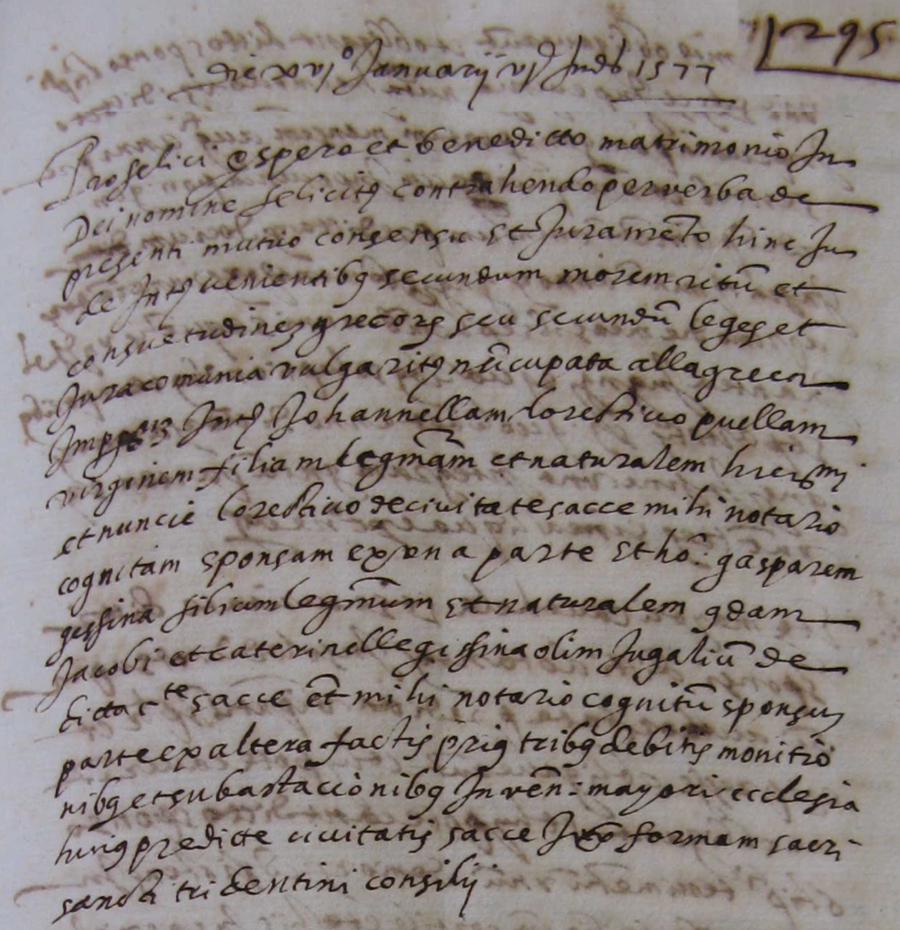 1295
die xvj° Januarij vj Ind. 1577
Pro felici espero et benedicto matrimonio In
Dei nomine feliciter contrahendo per verba de
presenti mutuo consensu et Juramēto hinc In
de Interuenientibq secundum morem ritū et
consuetudinez grecorz seu secundū leges et
Jura comunia vulgariter nūcupata alla greca
Inter Johannellam lo restiuo puellam
virginem filiam legmām et naturalem hieronimi
et nuncie lo restiuo de ciuitate sacce mihi notario
cognitam sponsam ex vna parte et ho: gasparem
gissina filium legmūm et naturalem qdam
Jacobi et caterinelle gissina olim Jugaliū de
ditta cte sacce et mihi notario cognitū sponsum
parte ex altera factis prius tribq debitis monitio
nibq et subastacionibq In ven: mayori ecclesia
huius predicte ciuitatis sacce Juxta formam sacri
sancti tridentini consilij